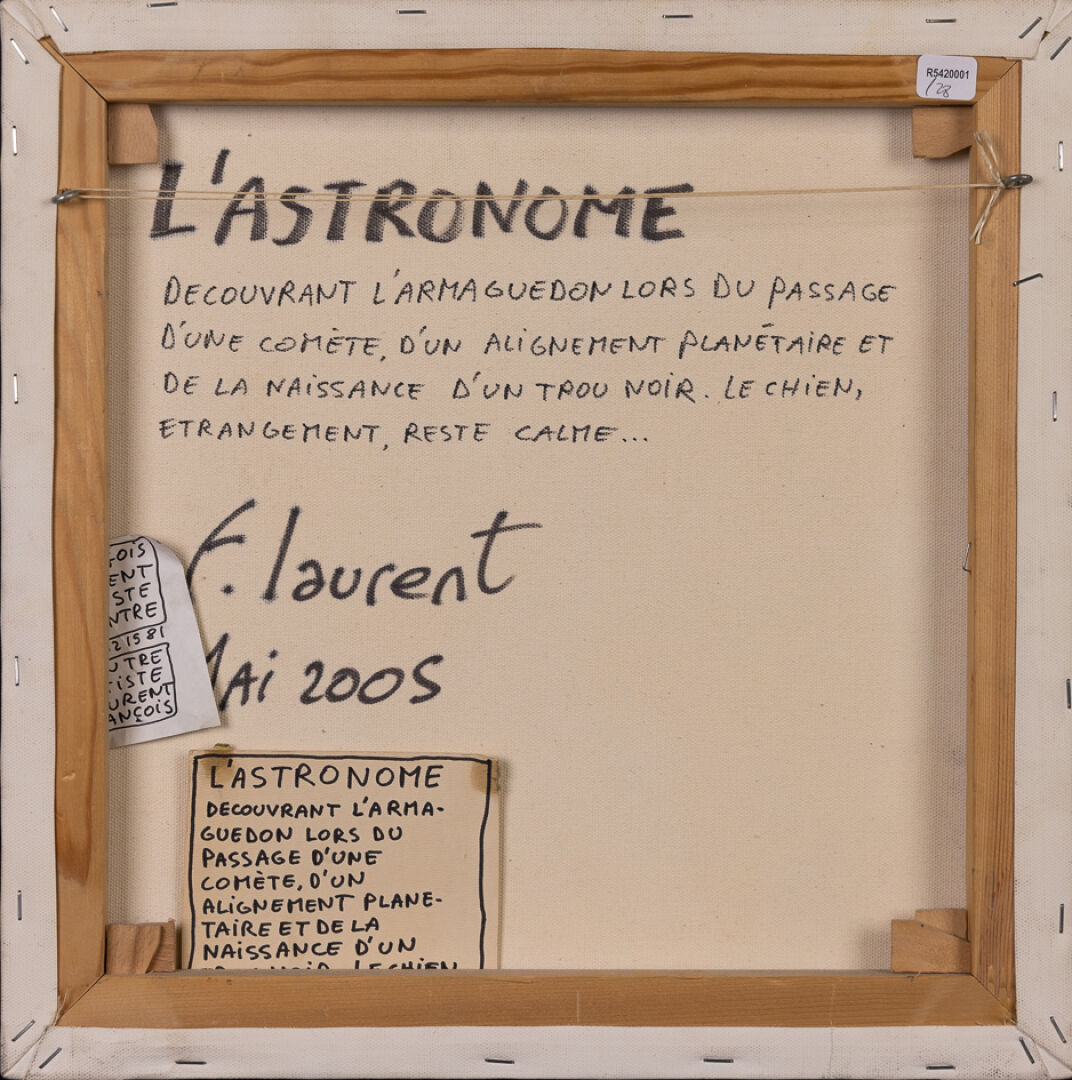 R5420001
/28
L'ASTRONOME
DECOUVRANT L'ARMAGUEDON LORS DU PASSAGE
D'UNE COMÈTE, D'UN ALIGNEMENT PLANÉTAIRE ET
DE LA NAISSANCE D'UN TROU NOIR. LE CHIEN,
ETRANGEMENT, RESTE CALME...
F. laurent
MAi 2005
OIS
ENT
STE
NTRE
21581
TRE
iSTE
URENT
ANÇOiS
L'ASTRONOME
DECOUVRANT L'ARMA-
GUEDON LORS DU
PASSAGE D'UNE
COMÈTE, D'UN
ALIGNEMENT PLANE-
TAIRE ET DE LA
NAISSANCE D'UN
NOIR. LE CHIEN